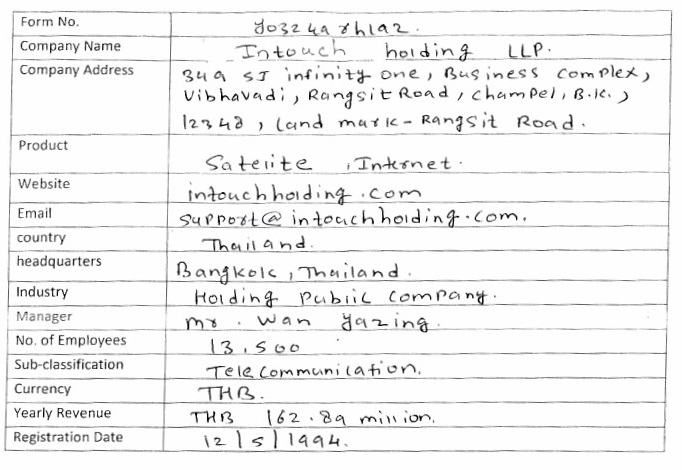 Form No. y0324arh1a2.
Company Name Intouch holding LLP.
Company Address 349 SJ infinity one, Business complex,
Vibhavadi, Rangsit Road, Champel, B.K.,
12348, Land mark - Rangsit Road.
Product Saterite, Internet.
Website intouchholding.com
Email support@intouchholding.com.
country Thailand.
headquarters Bangkok, Thailand.
Industry Holding Public Company.
Manager Mr. Wan Yazing.
No. of Employees 13,500
Sub-classification Telecommunication.
Currency THB.
Yearly Revenue THB 162.89 million.
Registration Date 12/5/1994.